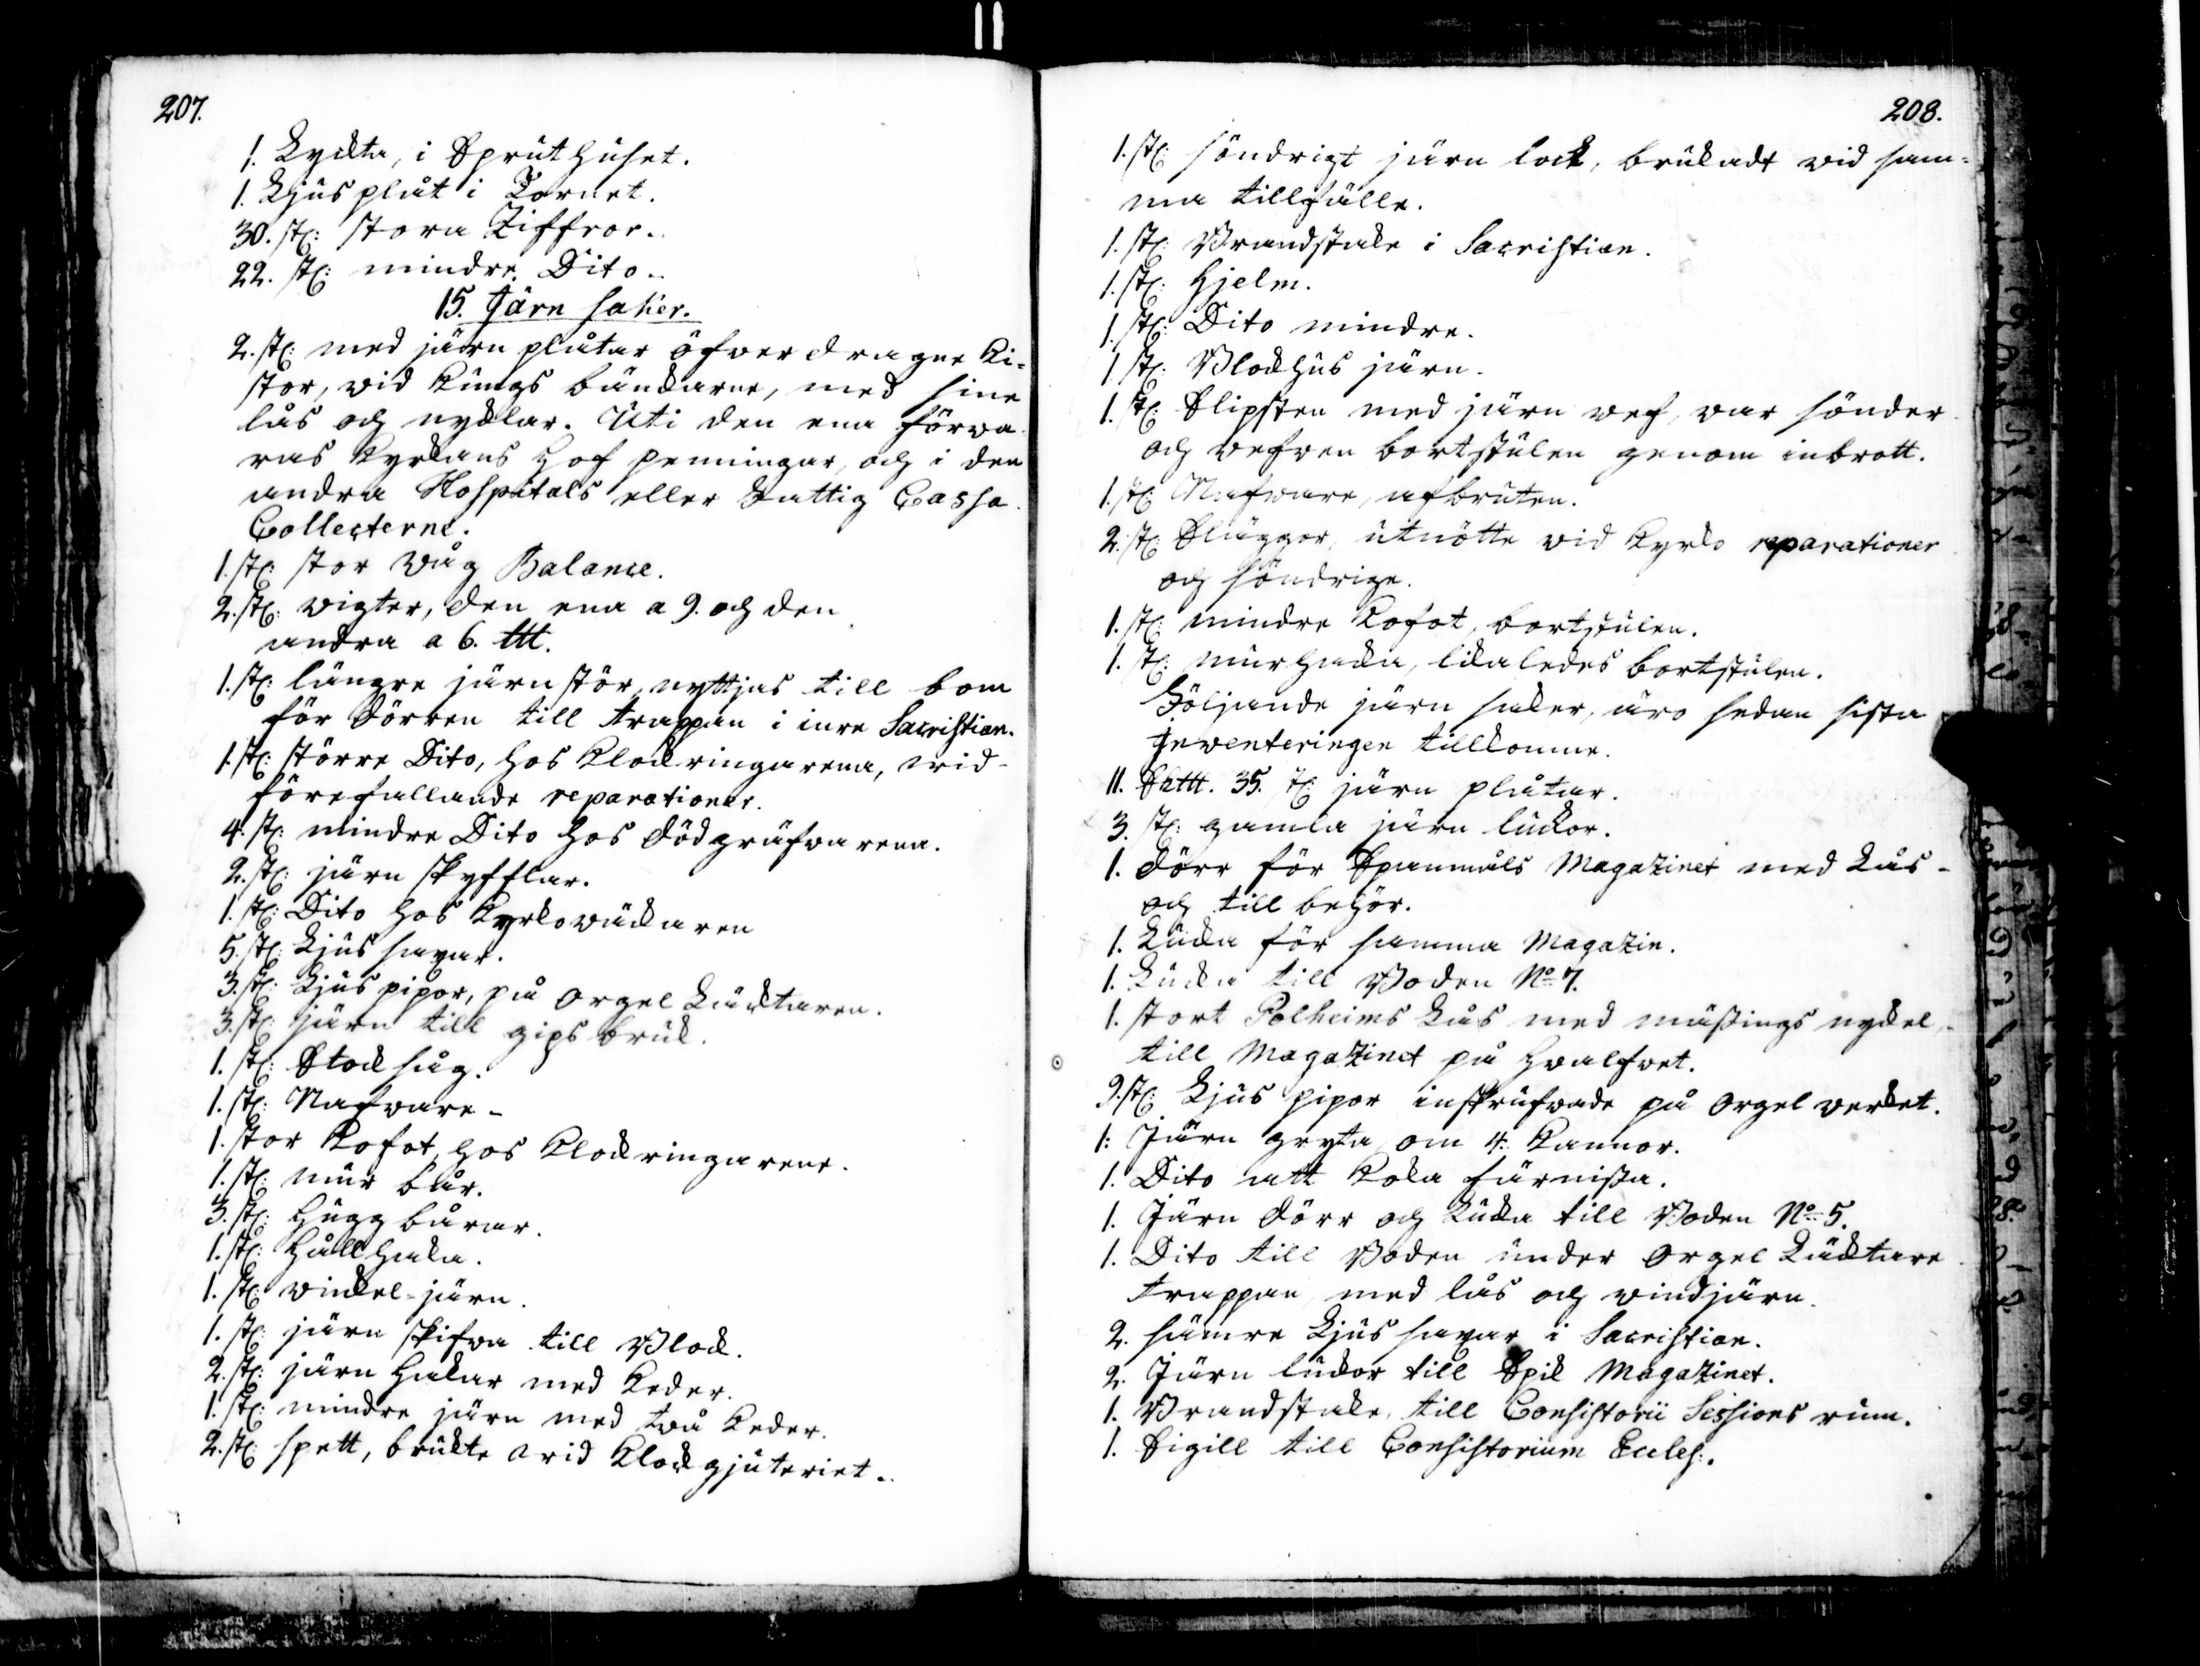 207.
1. Lyckta, i Spruthuset.
1. Ljusplåt i Tornet.
30. st: stora Ziffror.
22. st: mindre Dito.
15. Järn saker.
2. st: med järn plåtar öfverdragne Ki-
stor, vid Kungs bänckarne, med sine
lås och nycklar. Uti den ena förva
ras Kyrkans Hof penningar, och i den
andra Hospitals eller Fattig Cassa
Collecterne.
1. st: stor våg Balance.
2. st: vigter, den ena a 9. och den
andra a 6. ttt.
1. st: längre järn stör, nyttjas till bom
för dörren till trappan i inre Sacristian.
1. st: större Dito, hos Klockringarena, vid
förefallande reparationer.
4. st: mindre Dito hos dödgräfvarena.
2. st: järn skyfflar.
1. st: Dito hos Kyrkoväcktaren
5. st: Ljus saxar.
3. st: Ljus pipor, på orgel Läcktaren.
3. st: järn till gips bruk.
1. st: Stock såg.
1. st: Nafvare -
1. stor Kofot, hos Klockringarene.
1. st: mur bår.
3. st: Hugg bårar.
1. st: Håll haka.
1. st: vinckel-järn.
1. st: järn skifva till Block.
2. st: järn Hakar med Keder.
1. st: mindre järn med två Keder.
2. st: spett, brukte vid Klockgjuteriet.
208.
1. st: söndrigt järn lock, brukadt vid sam-
ma tillfälle.
1. st: Brandstake i Sacristian.
1. st: Hjelm.
1. st: Dito mindre.
1. st: Blockhus järn.
1. st: Slipsten med järn vef, var sönder
och vefven bortstulen genom inbrott.
1. st: Nafvare, afbruten.
2. st: Släggor, utnötte vid Kyrko reparationer
och söndrige.
1. st: mindre Kofot, bortstulen.
1. st: murhacka, likaledes bortstulen.
Följande järn saker, äro sedan sista
Inventeringen tillkomne.
11. Skttt. 35. ttt: järn plåtar.
3. st: gamla järn luckor.
1. dörr för Spanmåls Magazinet med Lås
och till behör.
1. Lucka för samma Magazin.
1. Lucka till Boden No 7.
1. stort Polheims Lås med mässings nyckel,
till Magazinet på Hvalfvet.
9. st: Ljus pipor inskrufvade på orgel verket.
1: Järn gryta om 4: Kannor.
1. Dito att Koka färnissa.
1. Järn dörr och Lucka till Boden No 5.
1. Dito till Boden under orgel Läcktare
trappan, med lås och vindjärn.
2. sämre Ljus saxar i Sacristian.
2. Järn luckor till Spik Magazinet.
1. Brandstake, till Consistorii Sessions rum.
1. Sigill till Consistorium Eccles:.